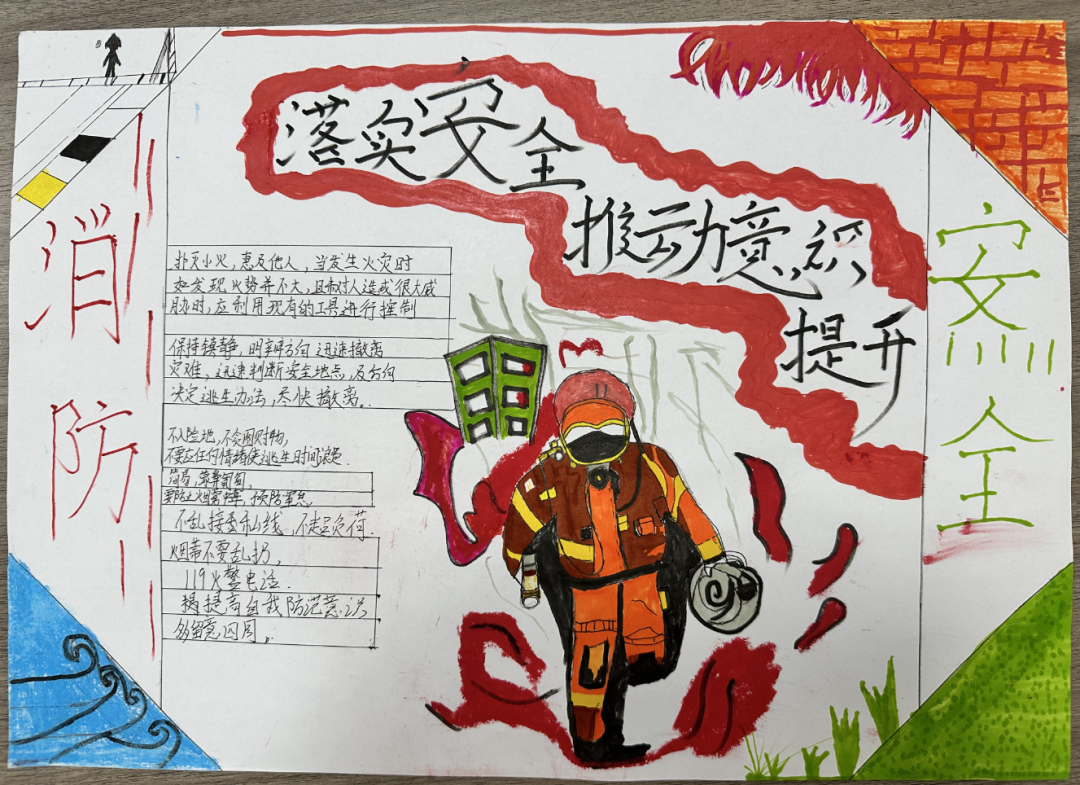 落实安全
推动意识
提升
消防
安全
扑灭小火，惠及他人，当发生火灾时
如发现火势并不大，且未对人造成很大威
胁时，应利用现有的工具进行控制
保持镇静，明辨方向 迅速撤离
灾难，迅速判断安全地点，及方向
决定逃生办法，尽快撤离。
不入险地，不贪图财物，
不要应任何情绪使逃生时间
简易 匍匐，
不乱接乱线，不超负荷.
烟蒂不要乱扔，
119火警电话.
提高自我防范意识
多留意四周。